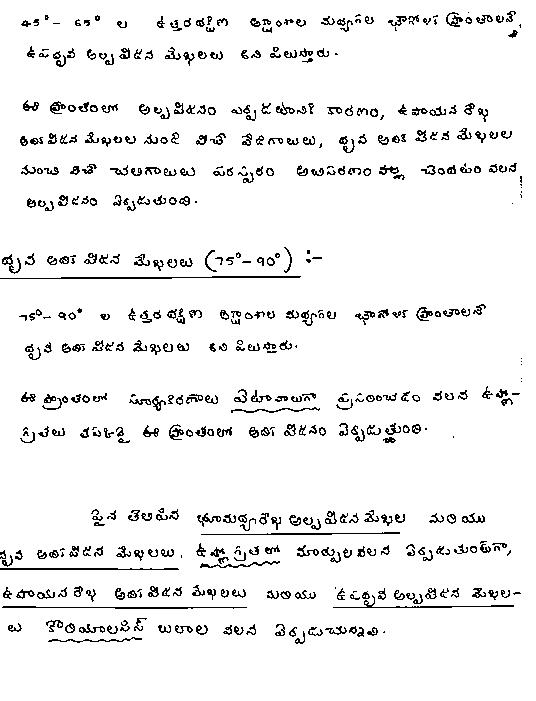 45° - 65° ల ఉత్తర దక్షిణ అక్షాంశాల మధ్యగల భౌగోళిక ప్రాంతాలనే,
ఉపధృవ అల్ప పీడన మేఖలలు అని పిలుస్తారు.
ఈ ప్రాంతంలో అల్ప పీడనం ఏర్పడటానికి కారణం, ఉపాయన రేఖ
అధిక పీడన మేఖలల నుండి వీచే వేడిగాలులు, ధృవ అధిక పీడన మేఖలల
నుంచి వీచే చలిగాలులు పరస్పరం అభిసరణం వల్ల చెందటం వలన
అల్ప పీడనం ఏర్పడుతుంది.
ధృవ అధిక పీడన మేఖలలు (75° - 90°) :-
75° - 90° ల ఉత్తర దక్షిణ అక్షాంశాల మధ్యగల భౌగోళిక ప్రాంతాలనే
ధృవ అధిక పీడన మేఖలలు అని పిలుస్తారు.
ఈ ప్రాంతంలో సూర్యకిరణాలు ఏటవాలుగా ప్రసరించడం వలన ఉష్ణో-
గ్రతలు తక్కువై ఈ ప్రాంతంలో అధిక పీడనం ఏర్పడుతుంది.
పైన తెలిపిన భూమధ్యరేఖ అల్ప పీడన మేఖల మరియు
ధృవ అధిక పీడన మేఖలలు, ఉష్ణోగ్రతలో మార్పుల వలన ఏర్పడుతుండగా,
ఉపాయన రేఖ అధిక పీడన మేఖలలు మరియు ఉపధృవ అల్ప పీడన మేఖల-
లు కొరియాలసిస్ బలాల వలన ఏర్పడుచున్నవి.